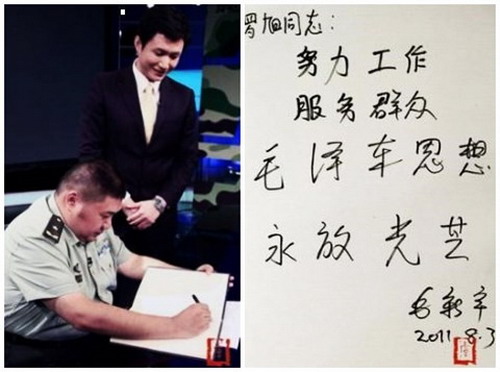 罗旭同志:
努力工作
服务群众
毛泽东思想
永放光芒
毛新宇
2011.8.3